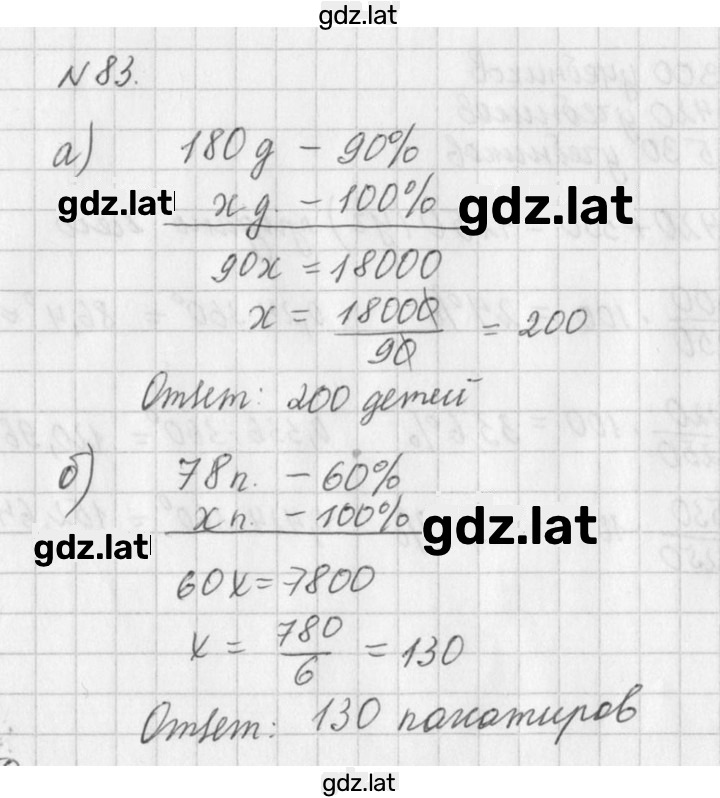 gdz.lat
№ 83.
а) 180 д – 90%
gdz.lat х д. – 100% gdz.lat
90х = 18000
х = 18000/90 = 200
Ответ: 200 детей
б) 78 п. – 60%
х п. – 100% gdz.lat
gdz.lat
60х = 7800
х = 780/6 = 130
Ответ: 130
gdz.lat